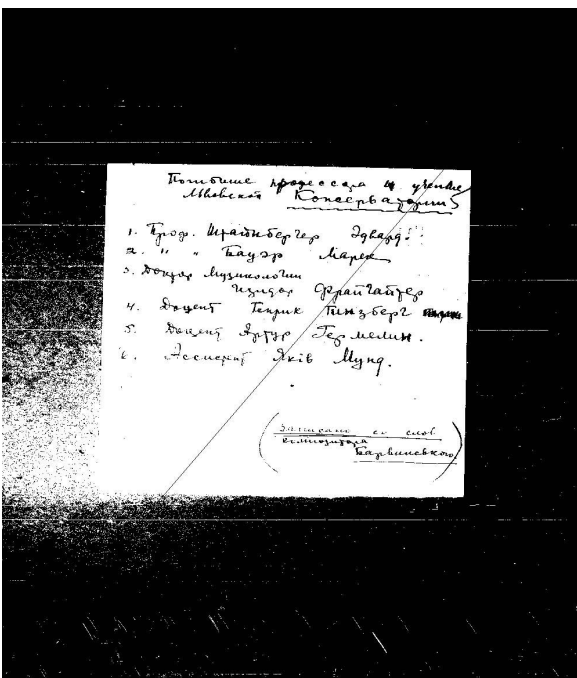 Погибшие професcора и ученые
Львовской Консерватории
1. Проф. Штайнбергер Эдвард.
2. " " Бауэр Марек
3. Доктор Музикологии
Изидор Фрайгайтер
4. Доцент Генрик Гинзберг
5. Доцент Артур Гермелин.
6. Ассистент Яків Мунд.
(Записано со слов
композитора
Барвинского)